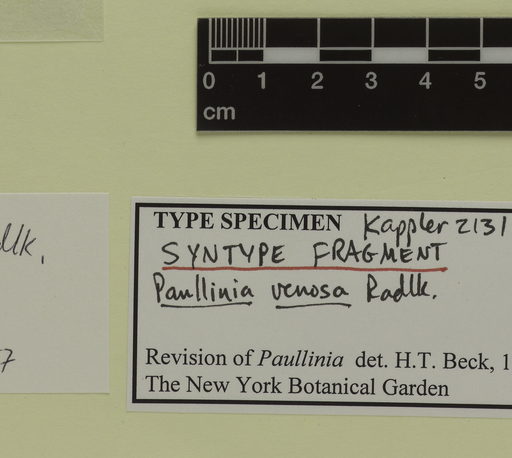 0 1 2 3 4 5
cm
dlk.
7
TYPE SPECIMEN Kappler 2131
SYNTYPE FRAGMENT
Paullinia venosa Radlk.
Revision of Paullinia det. H.T. Beck, 1
The New York Botanical Garden